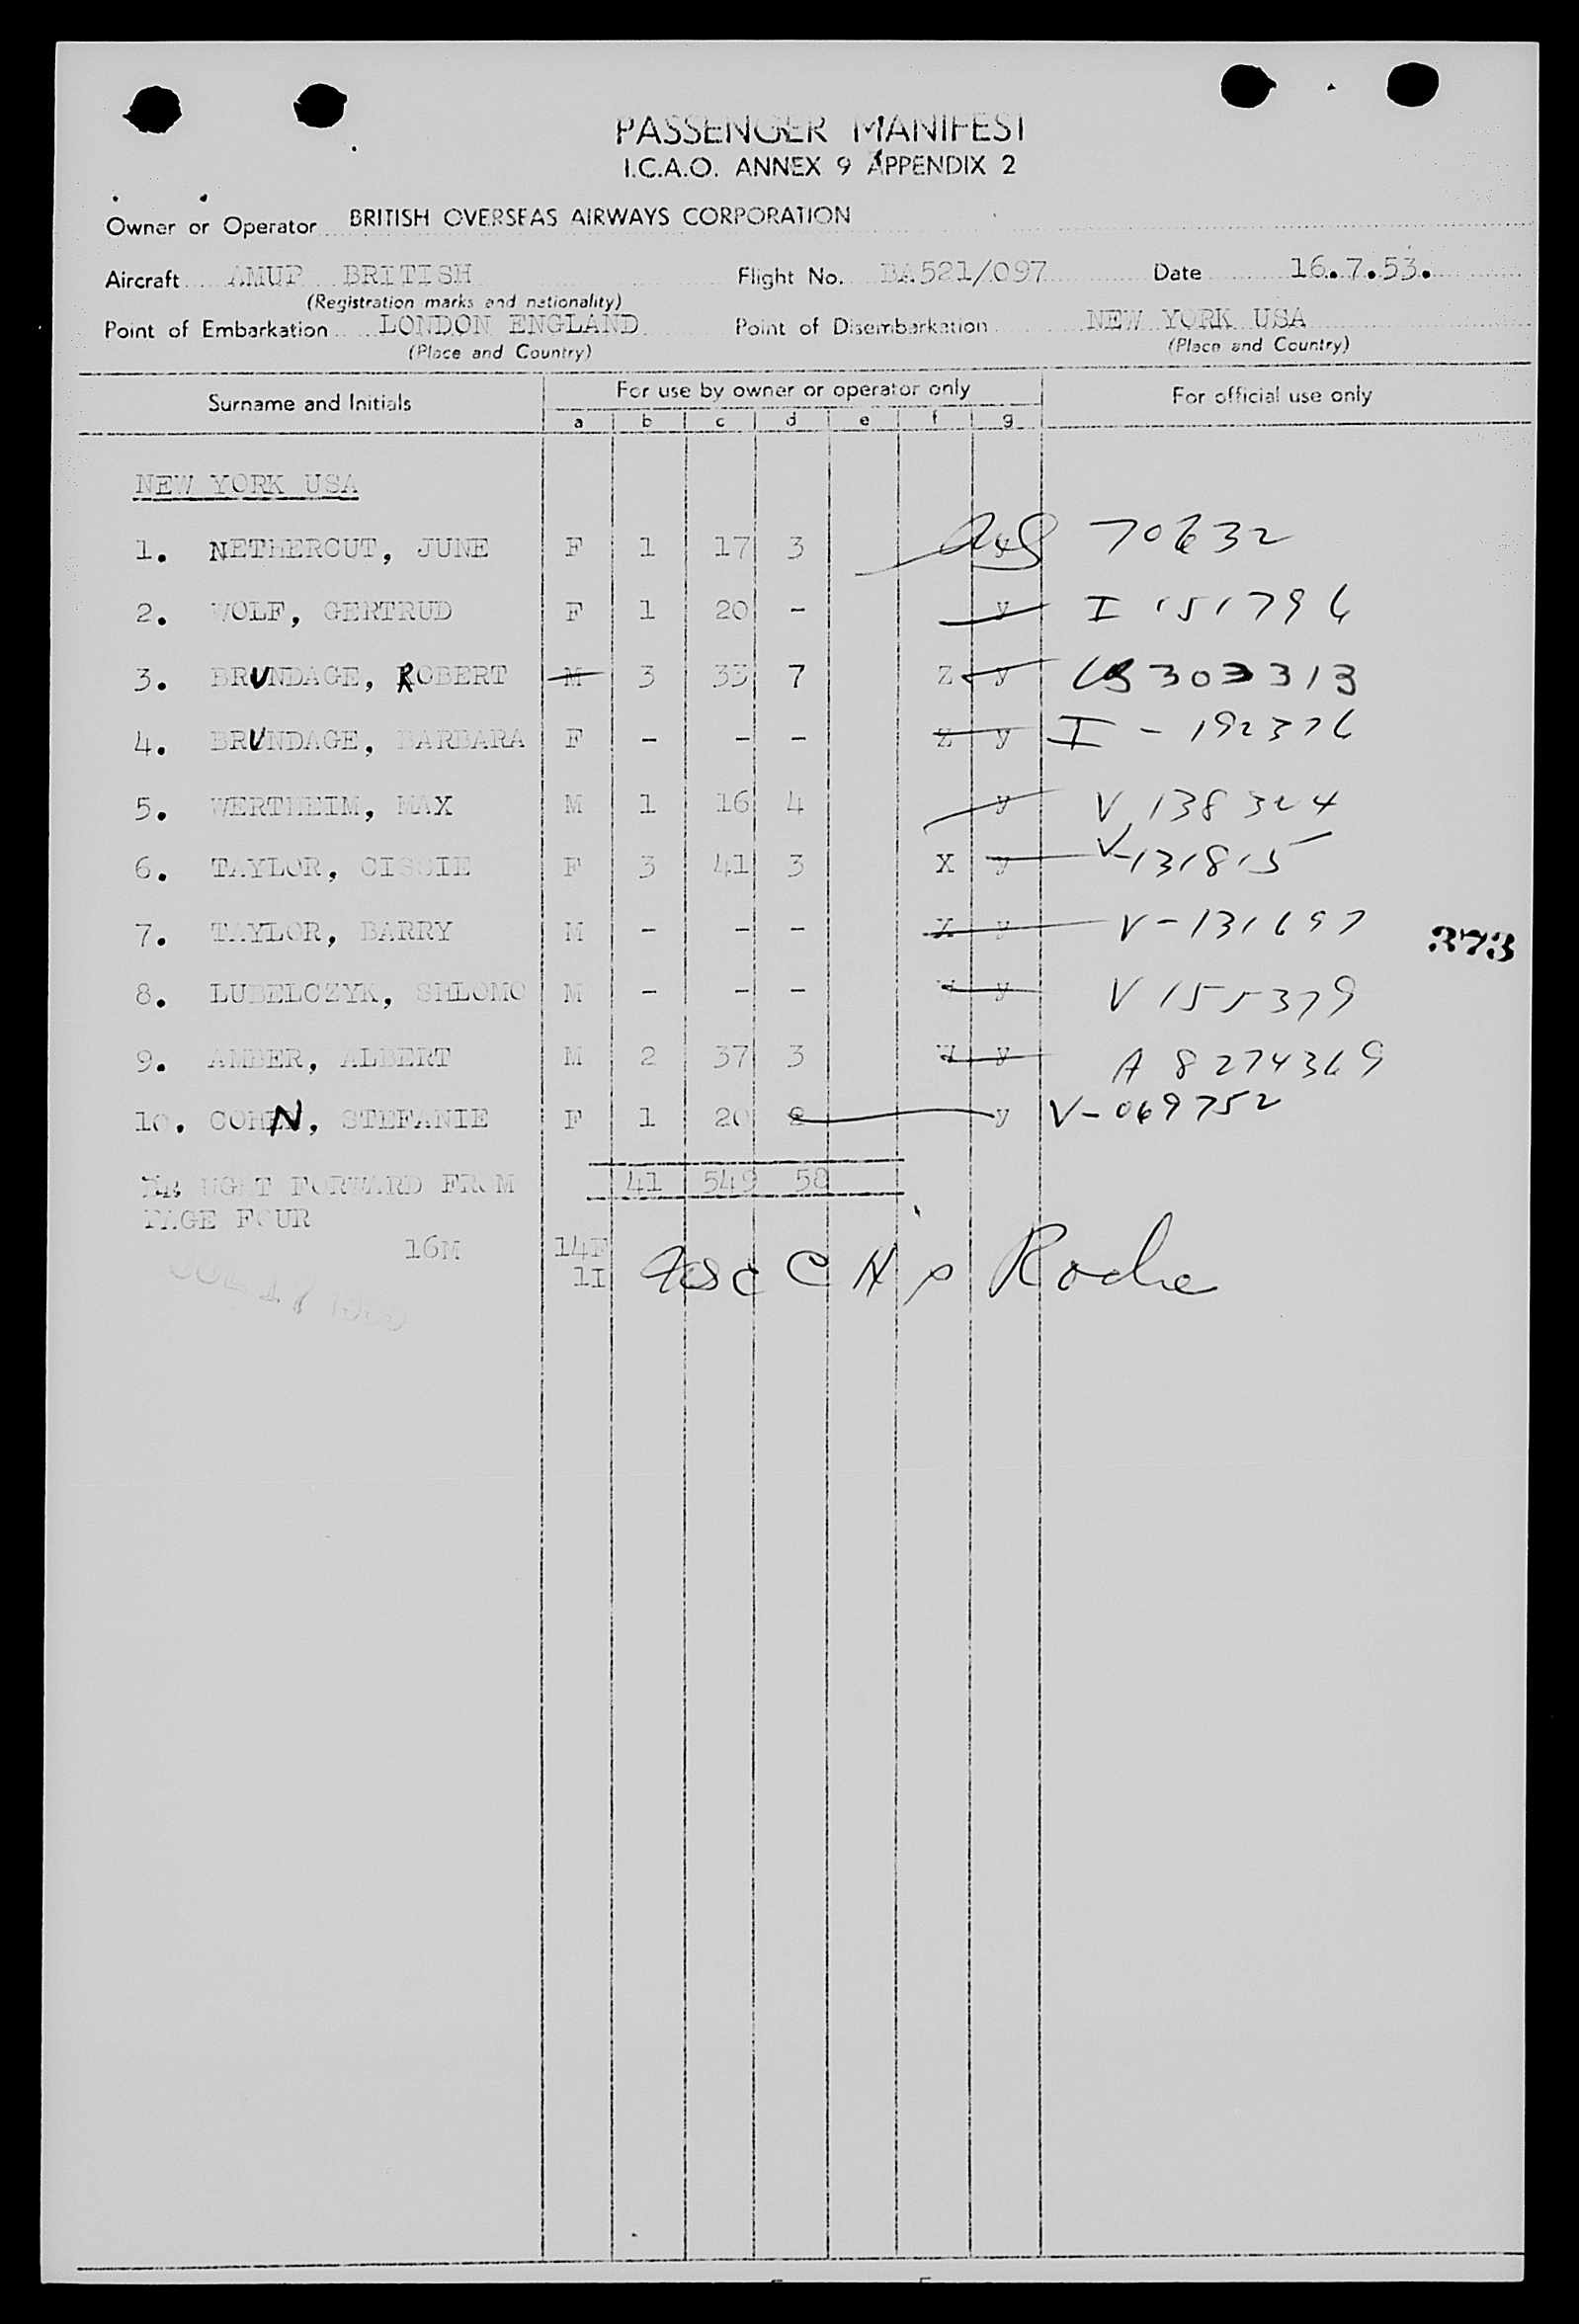 PASSENGER MANIFEST
I.C.A.O. ANNEX 9 APPENDIX 2
Owner or Operator BRITISH OVERSEAS AIRWAYS CORPORATION
Aircraft AMUP BRITISH Flight No. BA521/097 Date 16.7.53.
(Registration marks and nationality)
Point of Embarkation LONDON ENGLAND Point of Disembarkation NEW YORK USA
(Place and Country) (Place and Country)
Surname and Initials For use by owner or operator only For official use only
a b c d e f g
NEW YORK USA
1. NETHERCUT, JUNE F 1 17 3 y 70632
2. WOLF, GERTRUD F 1 20 - y I 151796
3. BRUNDAGE, ROBERT M 3 33 7 Z y 303313
4. BRUNDAGE, BARBARA F - - - Z y I - 192376
5. WERTHEIM, MAX M 1 16 4 y V 138324
6. TAYLOR, CISSIE F 3 41 3 X y V-131815
7. TAYLOR, BARRY M - - - X y V-131697
373
8. LUBELCZYK, SHLOMO M - - - y V 155379
9. AMBER, ALBERT M 2 37 3 W y A 8274369
10. COHEN, STEFANIE F 1 20 2 y V-069752
BROUGHT FORWARD FROM 41 549 58
PAGE FOUR
16M 14F
1I Roche